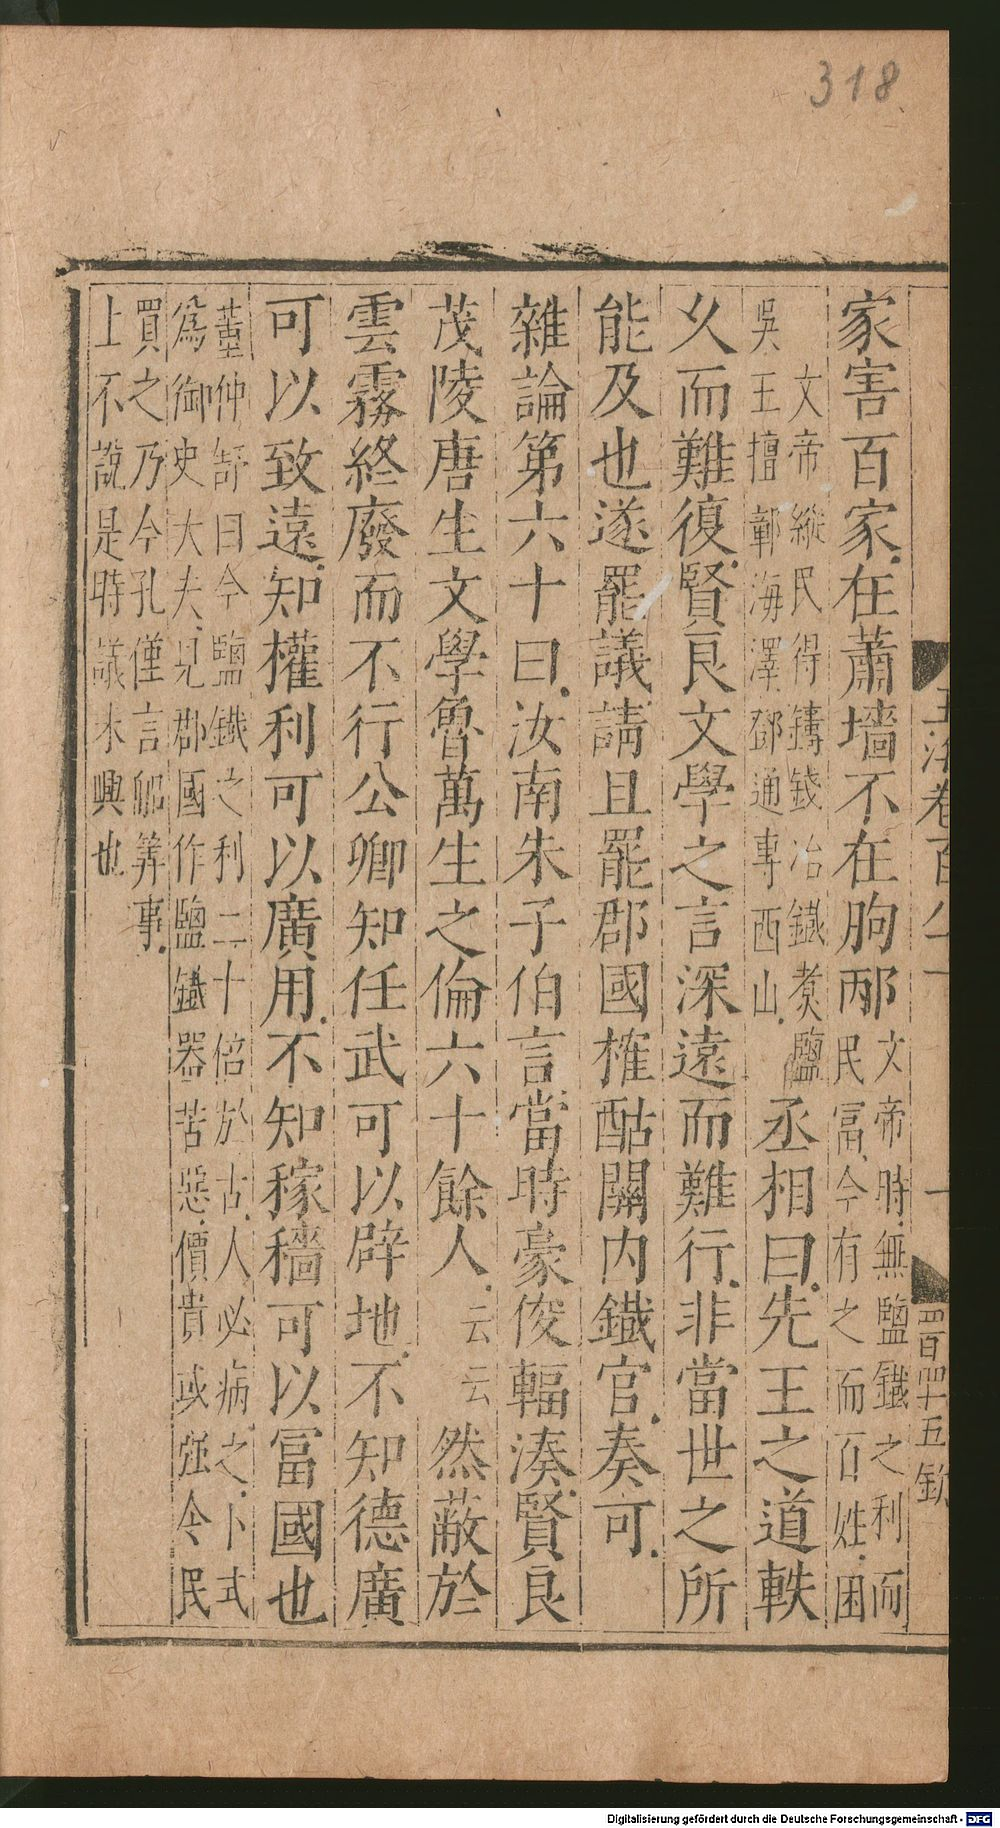 318
家害百家在蕭墻不在朐邴文帝時無鹽鐵之利而
民冨今有之而百姓困
文帝縱民得鑄錢冶鐵煑鹽
吳王擅鄣海澤鄧通專西山丞相曰先王之道軼
乆而難復賢良文學之言深遠而難行非當世之所
能及也遂罷議請且罷郡國榷酤關内鐵官奏可
雜論第六十曰汝南朱子伯言當時豪俊輻湊賢良
茂陵唐生文學魯萬生之倫六十餘人云云然蔽於
雲霧終廢而不行公卿知任武可以辟地不知德廣
可以致遠知權利可以廣用不知稼穡可以冨國也
董仲舒曰今鹽鐵之利二十倍於古人必病之卜式
爲御史大夫見郡國作鹽鐵器苦惡價貴或强令民
買之乃令孔僅言船筭事
上不說是時議未興也
玉海卷百八十一
一
四百四十五
Digitalisierung gefördert durch die Deutsche Forschungsgemeinschaft - DFG